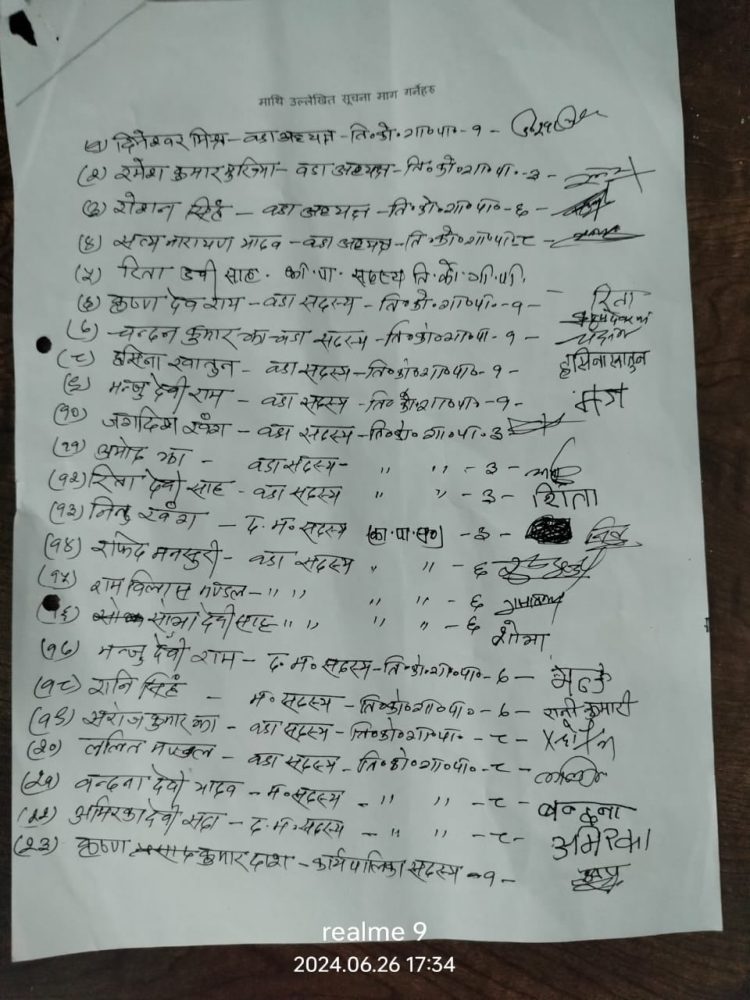 माथि उल्लेखित सूचना माग गर्नेहरु
दिनेश्वर मिश्र - वडा अध्यक्ष - ति॰को॰गा॰पा॰ - १ -
(२) रमेश कुमार - वडा अध्यक्ष - ति॰को॰गा॰पा॰ - ३ -
रोशन सिंह - वडा अध्यक्ष - ति॰को॰गा॰पा॰ - ६ -
(४) सत्य नारायण यादव - वडा अध्यक्ष - ति॰को॰गा॰पा॰ ८ -
(५) रिता देवी साह - का.पा. सदस्य ति.को.गा.पा.
(६) कृष्ण देव राम - वडा सदस्य - ति॰को॰गा॰पा॰ - १ - रिता
(७) चन्दन कुमार झा - वडा सदस्य - ति॰को॰गा॰पा - १ -
(८) हसिना खातुन - वडा सदस्य - ति॰को॰गा॰पा॰ - १ - हसिना खातुन
(९) मन्जु देवी राम - वडा सदस्य - ति॰को॰गा॰पा॰ - १ - मंजु
(१०) जगदिश - वडा सदस्य - ति॰को॰गा॰पा॰ ३
(११) अमोद झा - वडा सदस्य - " " - ३ -
(१२) रिता देवी साह - वडा सदस्य " " - ३ - रिता
(१३) नितु - द.म॰ सदस्य (का.पा.स॰) - ३ -
(१४) रफिद मनसुरी - वडा सदस्य " " - ६
(१५) राम विलास मण्डल - " " " " - ६
(१६) सोभा देवी साह - " " " " - ६ शोभा
(१७) मन्जु देवी राम - द.म॰ सदस्य - ति॰को॰गा॰पा॰ - ७ -
(१८) रानि सिंह - म॰ सदस्य - ति॰को॰गा॰पा॰ - ७ - रानी कुमारी
(१९) सरोज कुमार झा - वडा सदस्य - ति॰को॰गा॰पा॰ - ८ -
(२०) ललित मण्डल - वडा सदस्य - ति॰को॰गा॰पा॰ - ८ -
(२१) वन्दना देवी यादव - म॰ सदस्य - " " - ८ - बन्दना
(२२) अमिरका देवी सदा - द.म॰ सदस्य - " " - ८ - अमिरका
(२३) कृष्ण कुमार दाश - कार्यपालिका सदस्य - १ -
realme 9
2024.06.26 17:34